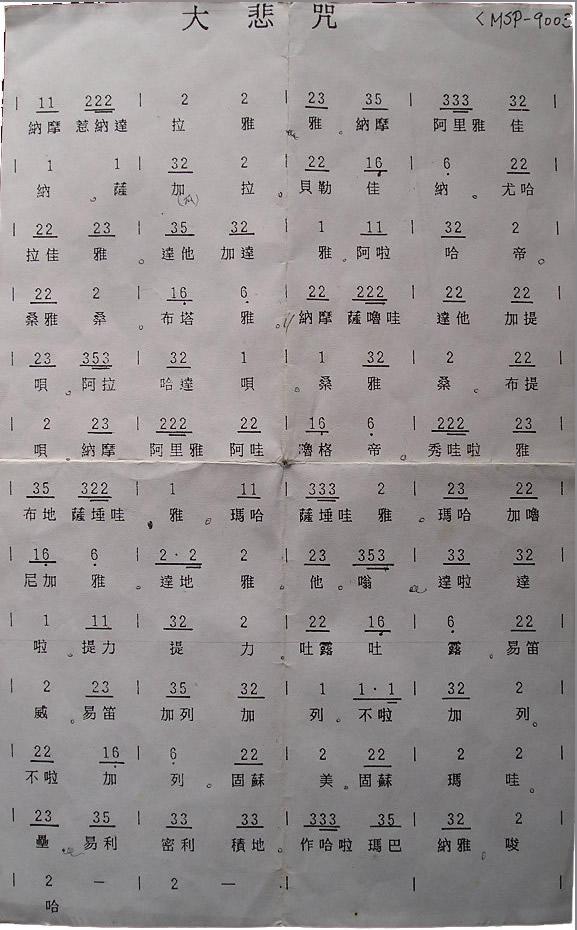 大悲咒 <MSP-9003
| 11 222 | 2 2 | 23 35 | 333 32 |
納摩 惹納達 拉 雅 雅。納摩 阿里雅 佳
| 1 1 | 32 2 | 22 16 | 6 22 |
納。薩 加 拉。貝勒 佳 納。尤哈
| 22 23 | 35 32 | 1 11 | 32 2 |
拉佳 雅。達他 加達 雅。阿啦 哈 帝。
| 22 2 | 16 6 | 22 222 | 22 22 |
桑雅 桑。布塔 雅。納摩 薩嚕哇 達他 加提
| 23 353 | 32 1 | 1 32 | 2 22 |
唄。阿拉 哈達 唄。桑 雅 桑。布提
| 2 23 | 222 22 | 16 6 | 222 23 |
唄。納摩 阿里雅 阿哇 嚕格 帝。秀哇啦 雅
| 35 322 | 1 11 | 333 2 | 23 22 |
布地 薩埵哇 雅。瑪哈 薩埵哇 雅。瑪哈 加嚕
| 16 6 | 2·2 2 | 23 353 | 33 32 |
尼加 雅。達地 雅。他。嗡 達啦 達
| 1 11 | 32 2 | 22 16 | 6 22 |
啦。提力 提 力。吐露 吐 露。易笛
| 2 23 | 35 32 | 1 1·1 | 32 2 |
威。易笛 加列 加 列。不啦 加 列。
| 22 16 | 6 22 | 2 22 | 2 2 |
不啦 加 列。固蘇 美。固蘇 瑪 哇。
| 23 35 | 33 33 | 333 35 | 32 2 |
壘。易利 密利 積地。作哈啦 瑪巴 納雅。唆
| 2 — | 2 — | | |
哈